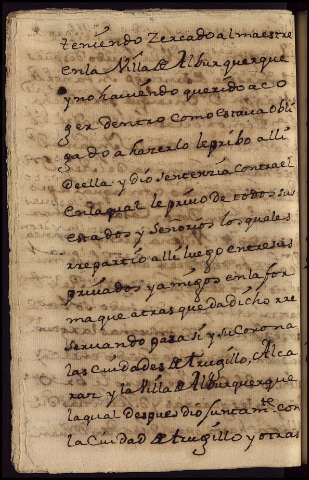 teniendo Zercado al maestre
en la Villa de Alburquerque
y no haviendo querido aco
ger dentro como estava obli
gado a hazerlo le pribo alli
de ella y dio sentenzia contra el
en la qual le privo de todos sus
estados y señorios los quales
rrepartio alli luego entre sus
privados y amigos en la for
ma que atras queda dicho rre
servando para si y su corona
las Ciudades de trugillo, Alca
raz y la Villa de Alburquerque
la qual despues dio juntamte. con
la Ciudad de trugillo y otras